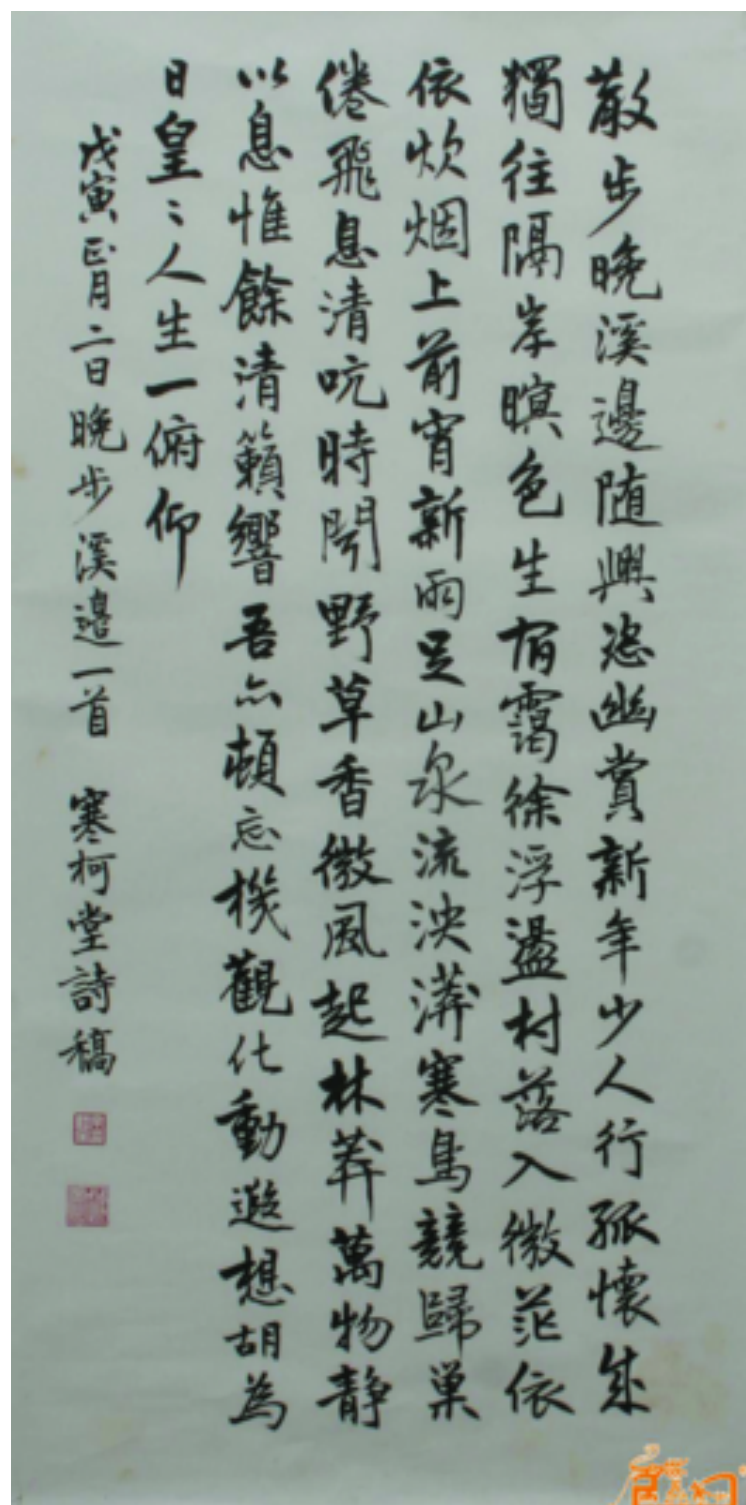 散步晚溪邊随興恣幽賞新年少人行孤懷成
獨往隔岸暝色生宿靄徐浮盪村落入微茫依
依炊烟上前宵新雨足山泉流泱漭寒鳥競歸巢
倦飛息清吭時聞野草香微風起林莽萬物静
以息惟餘清籟響吾亦頓忘機觀化動遐想胡為
日皇〻人生一俯仰
戊寅正月二日晚步溪邊一首 寒柯堂詩稿